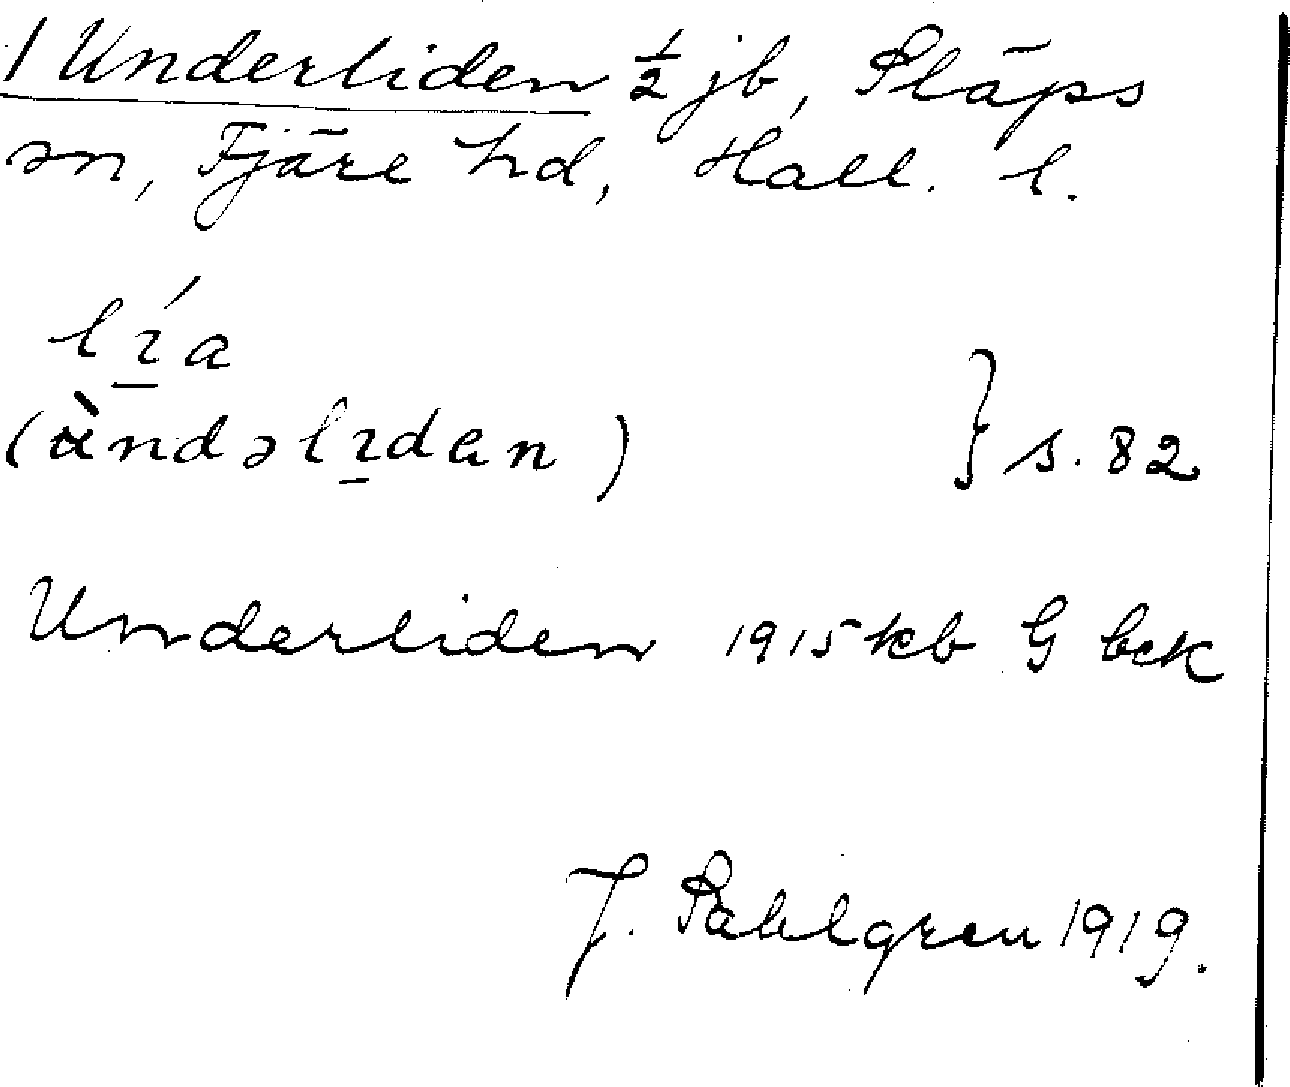 1 Underliden ½ jb, Släps
sn, Fjäre hd, Hall. l.
lı̱́a
(ùndəlı̱dan)
} s. 82
Underliden 1915 kb G bck
J. Sahlgren 1919.